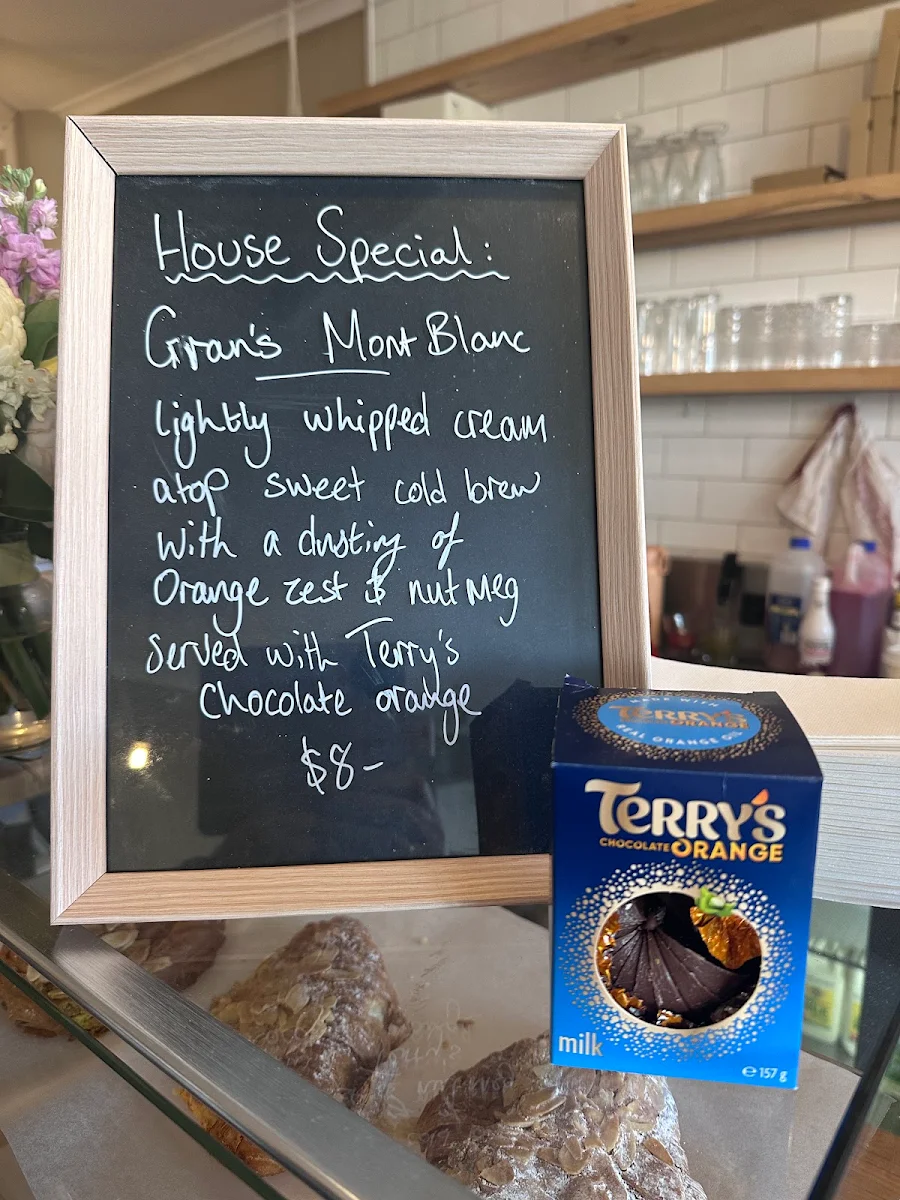 House Special:
Gran's Mont Blanc
Lightly whipped cream
atop sweet cold brew
with a dusting of
Orange zest & nutmeg
Served with Terry's
Chocolate orange
$8-
MADE WITH
TERRY'S
ORANGE
REAL ORANGE OIL
TERRY'S
CHOCOLATE ORANGE
milk
e 157 g